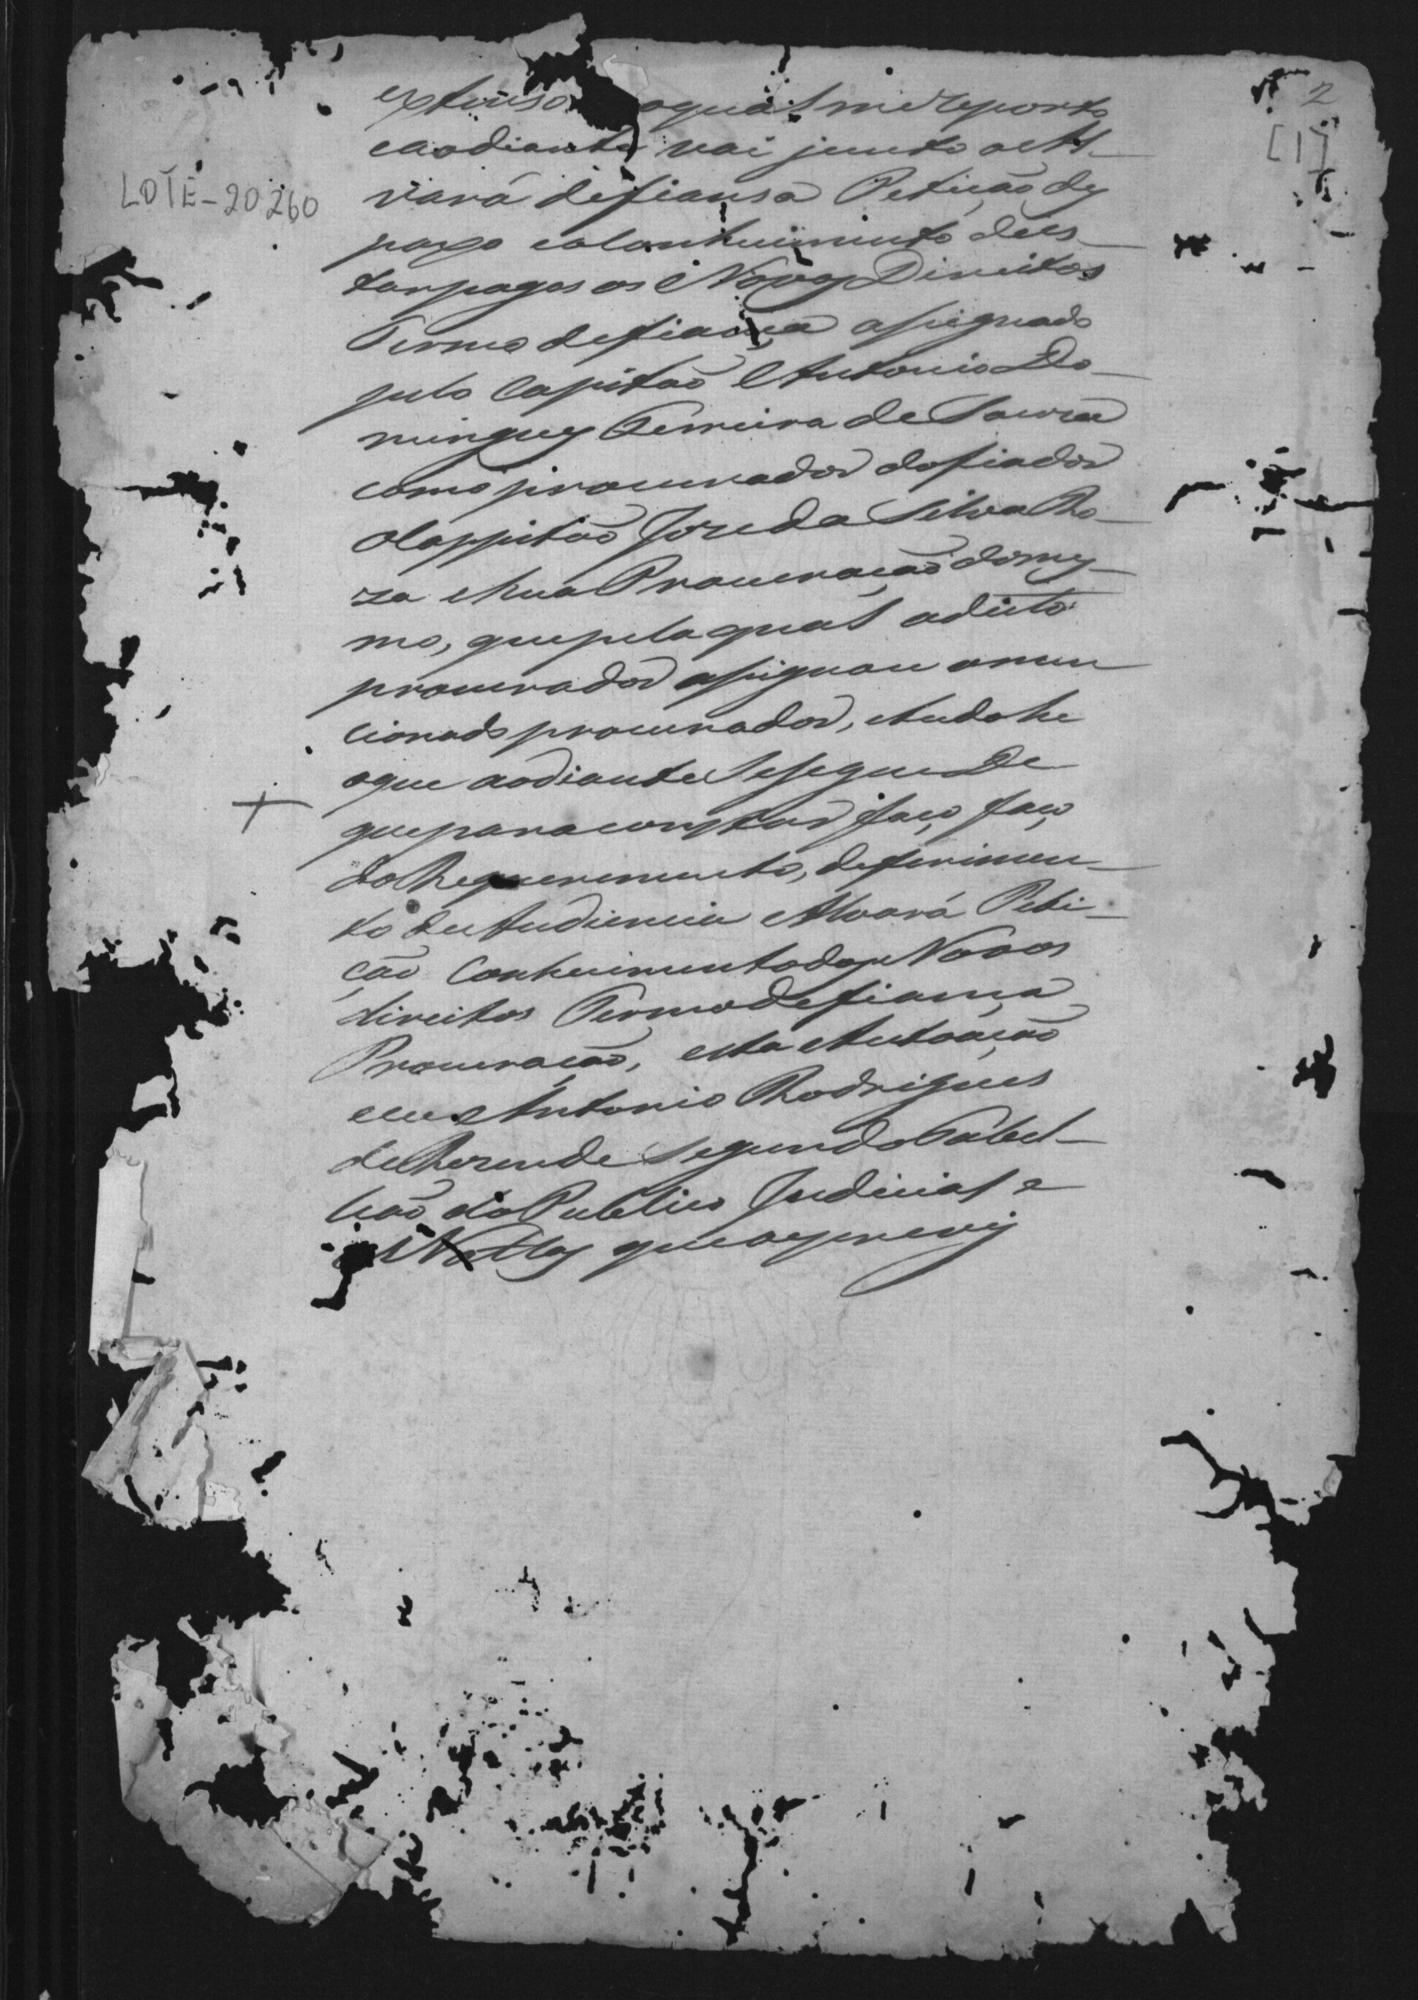 2
[1]
LOTE-20260
extenso aqual me reporto
eaodiante vai junto o Al-
vará defiansa Petição dey
paxo e Conhecimento de es-
tar pagos os Novos Direitos
Termo defiança asignado
pelo Capitão Antonio Do-
mingues Ferreira de Souza
como procurador do fiador
o Cappitão Joze da Silva Ro-
za e hua Procuração do mes-
mo, que pela qual a dicto
procurador asignou o men
cionado procurador, etudo he
oque aodiante se segue De
que para constar faço faço
do Requerimento, deferimen-
to de Audiencia Alvará Peti-
ção Conhecimento dos Novos
direitos Termo de fiança
Procuração, esta Autoação
eu Antonio Rodrigues
de Rezende Segundo Tabel-
lião do Publico Judicial e
Nottas que oescrevy